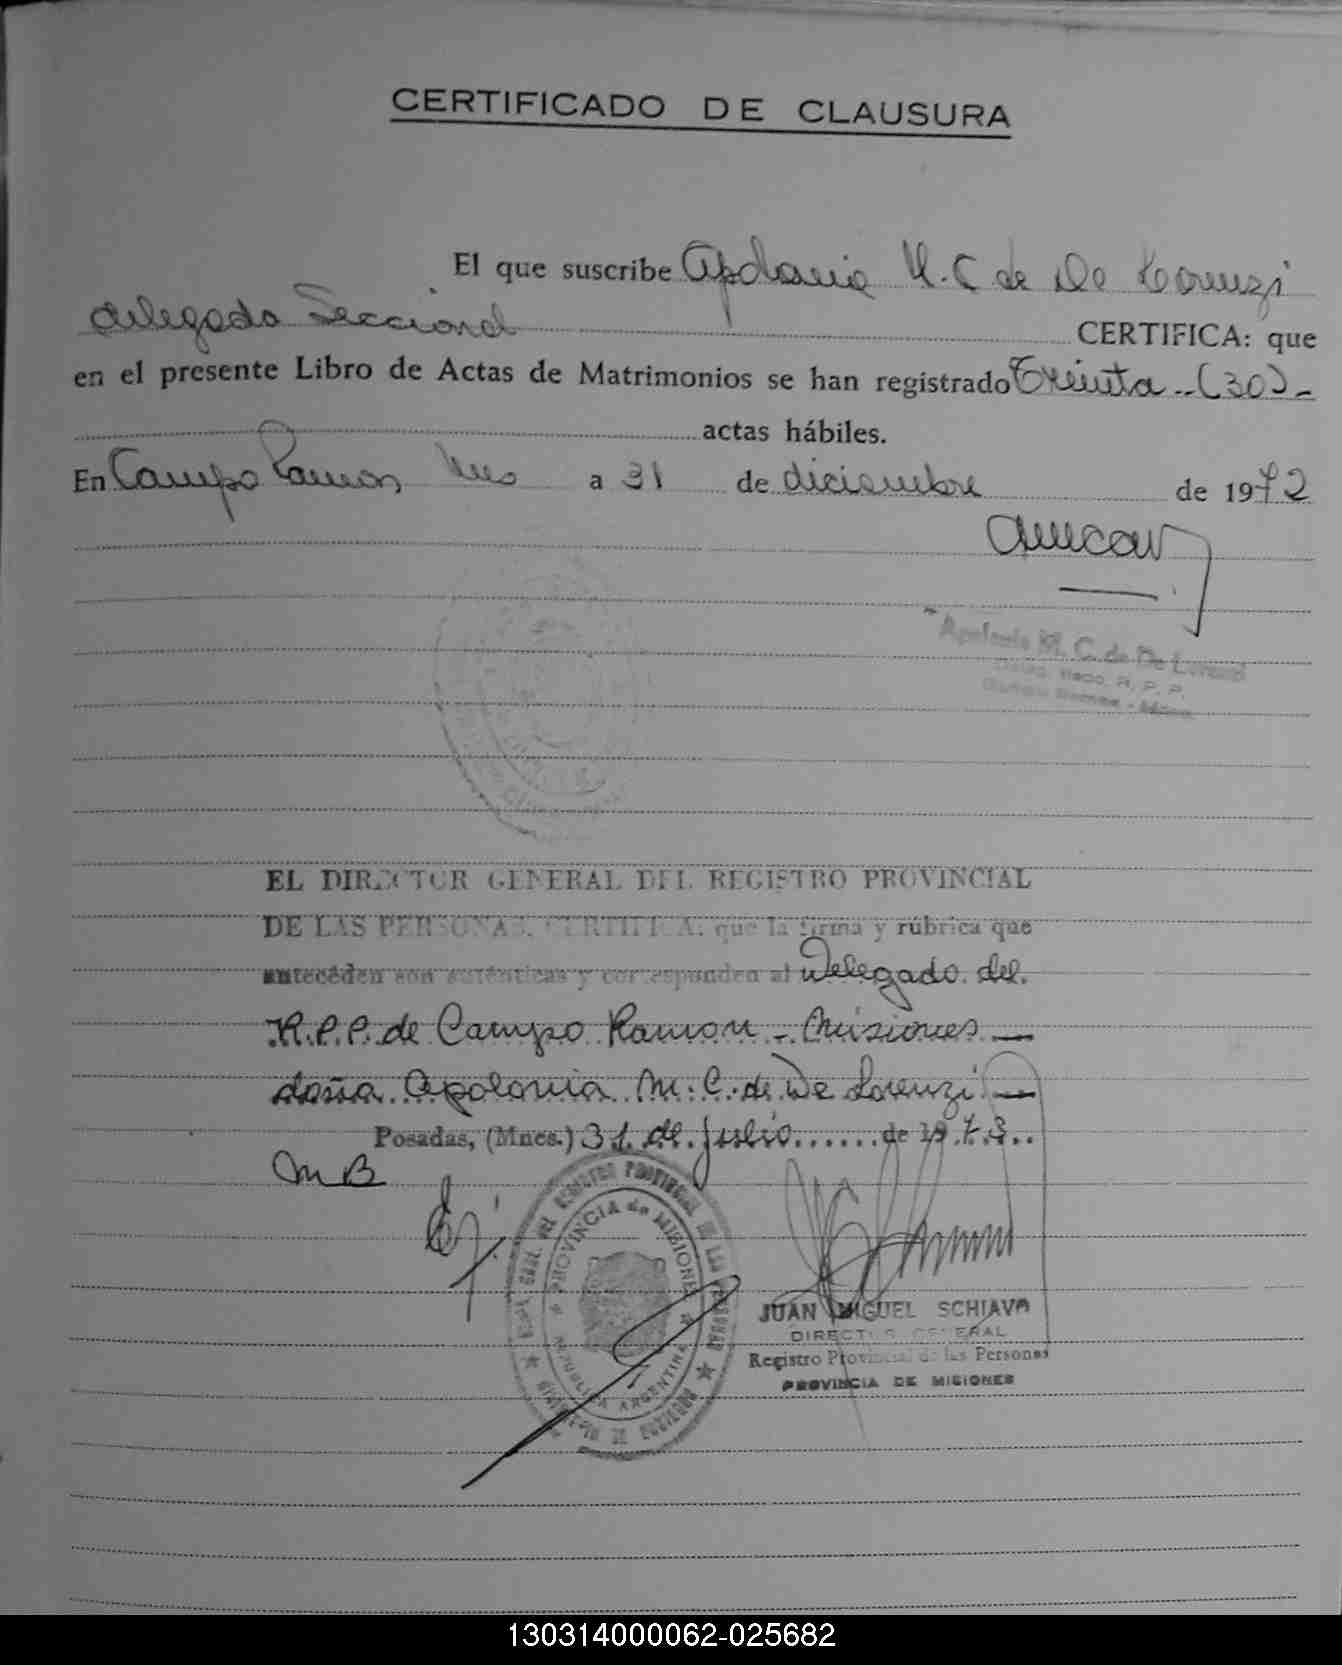 CERTIFICADO DE CLAUSURA
El que suscribe Apolonia M. C de De Lorenzi
delegada Seccional CERTIFICA: que
en el presente Libro de Actas de Matrimonios se han registrado Treinta -- (30) -
actas hábiles.
En Campo Ramon Mnes a 31 de diciembre de 1972
Apolonia M. C. de De Lorenzi
R. P. P.
EL DIRECTOR GENERAL DEL REGISTRO PROVINCIAL
DE LAS PERSONAS, CERTIFICA: que la firma y rúbrica que
antecéden son auténticas y corresponden al Delegado del
R.P.P. de Campo Ramon - Misiones —
doña Apolonia M. C. de De Lorenzi —
Posadas, (Mnes.) 31 de julio ...... de 1973..
MB
REGISTRO PROVINCIAL DE LAS PERSONAS
PROVINCIA de MISIONES
REPUBLICA ARGENTINA
JUAN MIGUEL SCHIAVO
DIRECTOR GENERAL
Registro Provincial de las Personas
PROVINCIA DE MISIONES
130314000062-025682